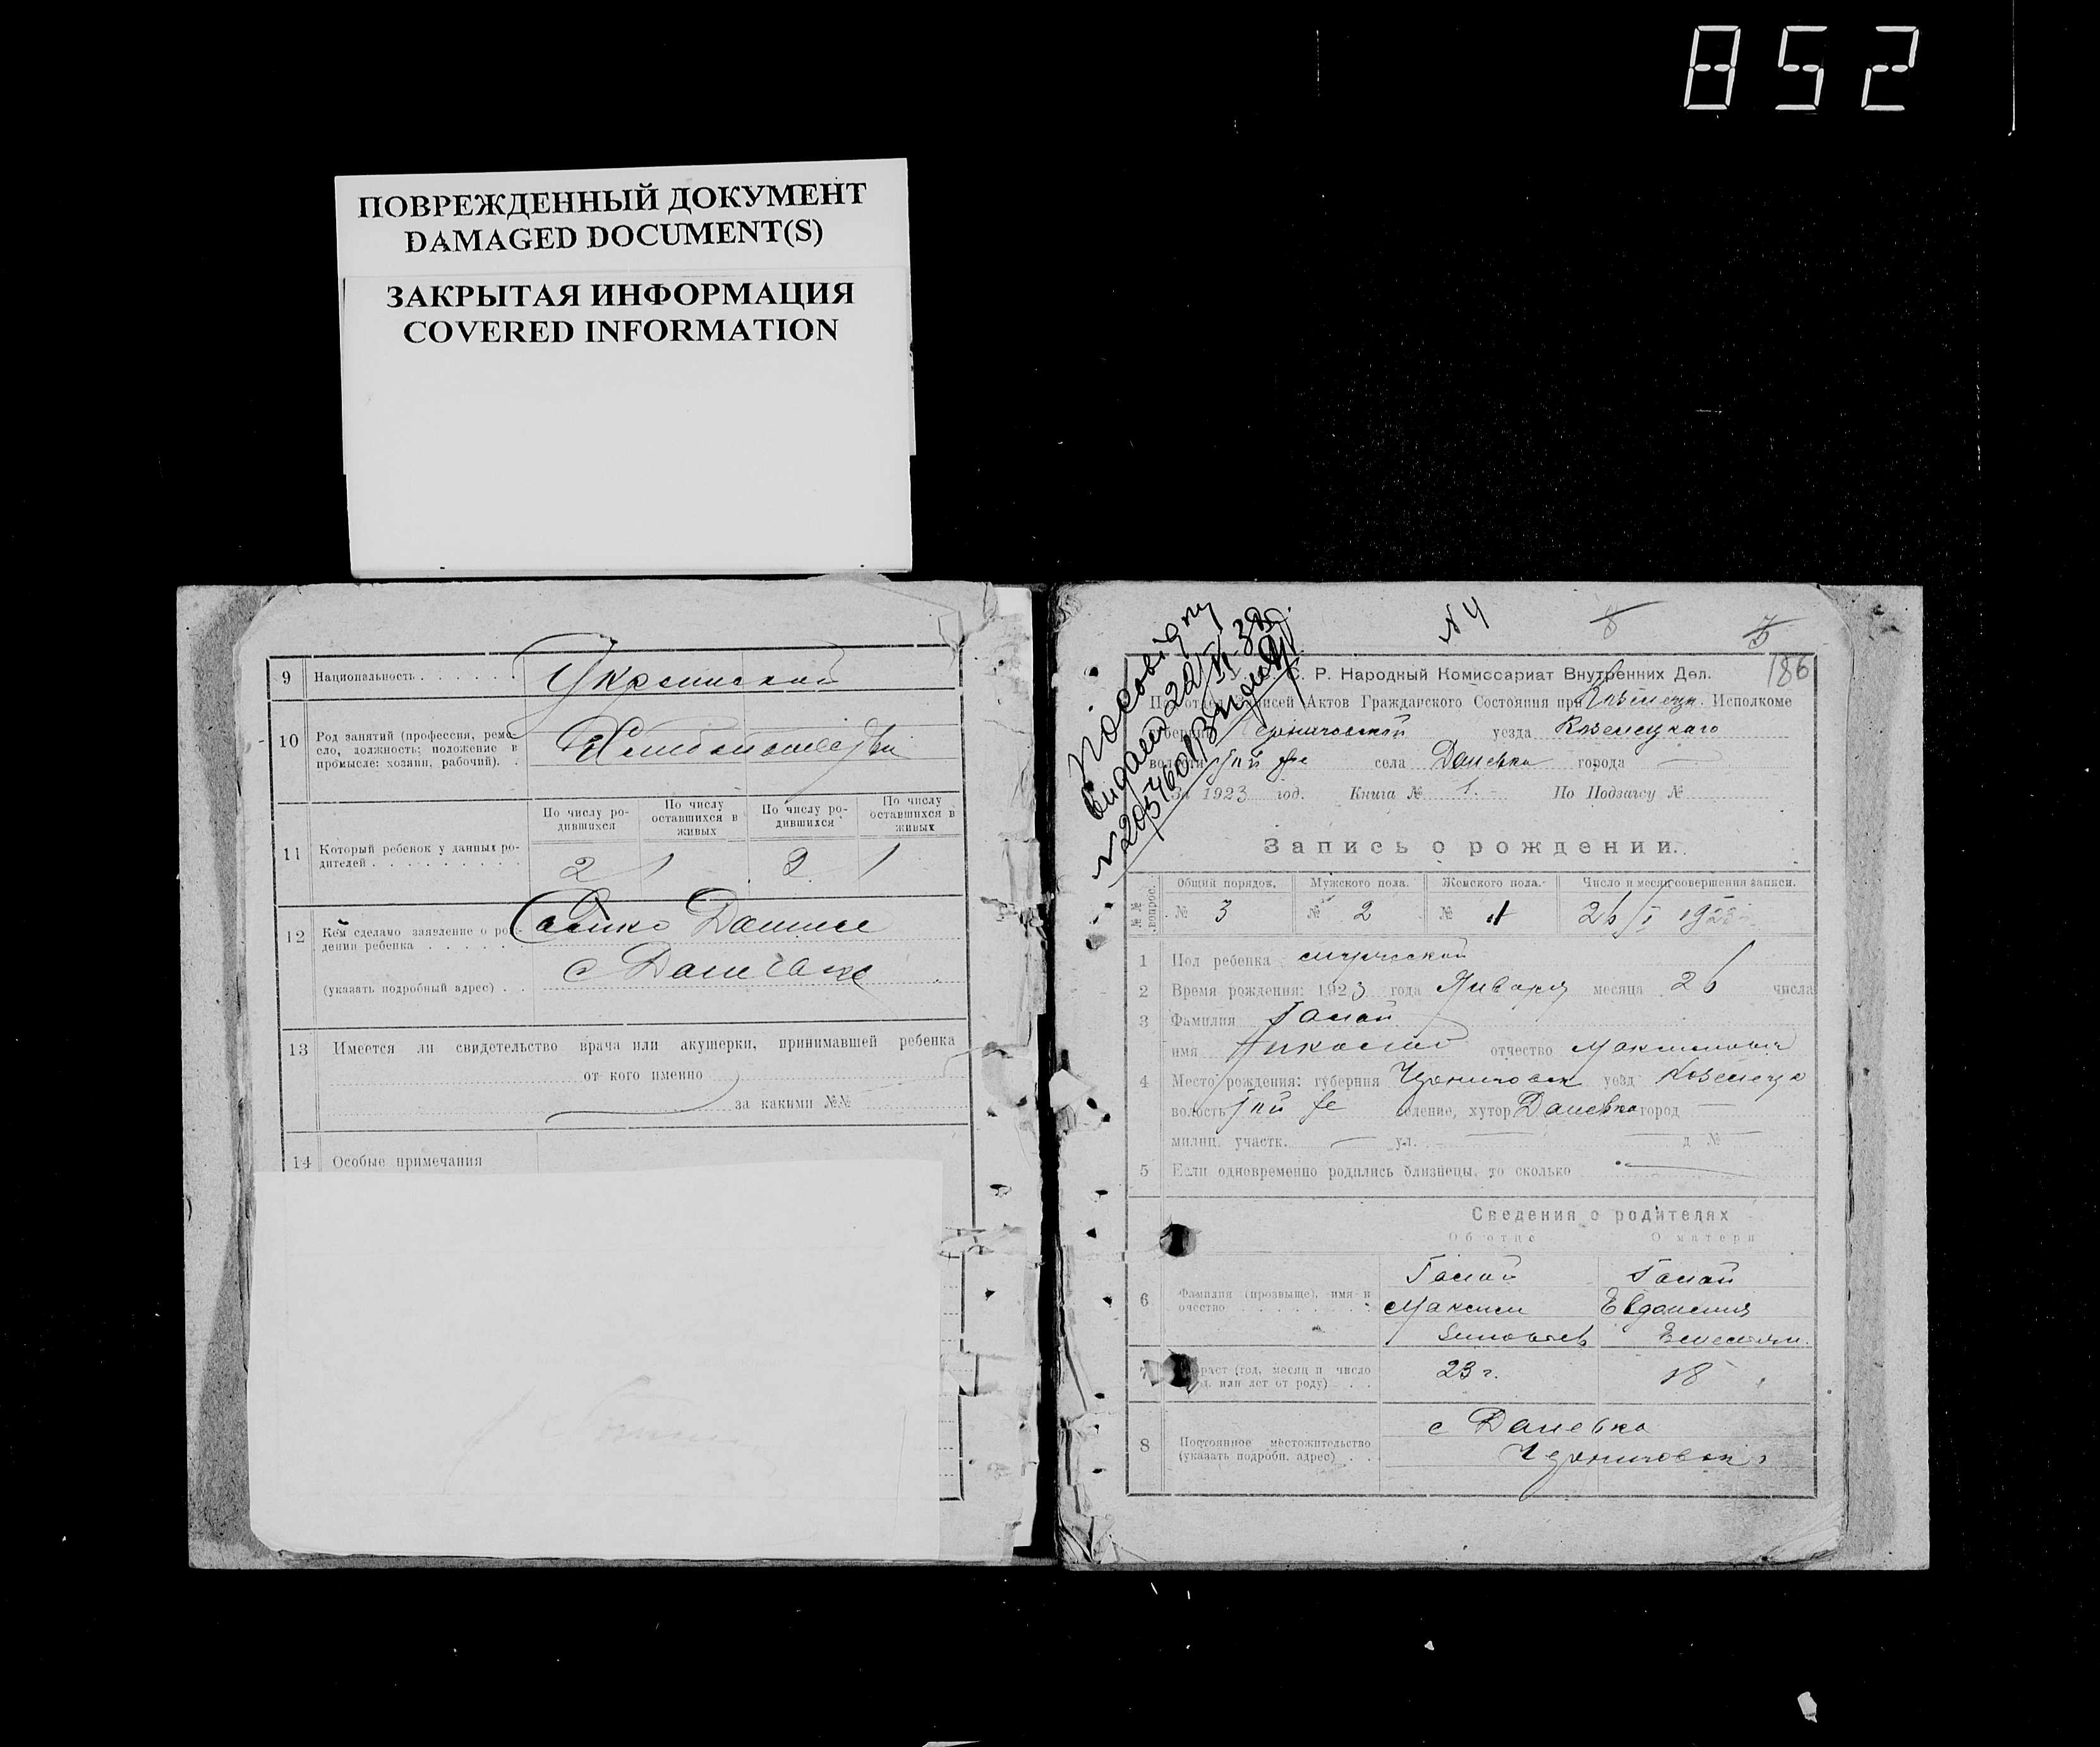 852
ПОВРЕЖДЕННЫЙ ДОКУМЕНТ
DAMAGED DOCUMENT(S)
ЗАКРЫТАЯ ИНФОРМАЦИЯ
COVERED INFORMATION
9 Национальность . . . . . . Украинской
10 Род занятий (профессия, реме-
сло, должность; положение в
промысле: хозяин, рабочий). .
По числу ро-
дившихся
По числу
оставшихся в
живых
По числу ро-
дившихся
По числу
оставшихся в
живых
11 Который ребенок у данных ро-
дителей . . . . . . . . . .
2 1 2 1
12 Кем сделано заявление о ро-
дении ребенка . . . . . .
(указать подробный адрес) . . с
13 Имеется ли свидетельство врача или акушерки, принимавшей ребенка
от кого именно
за какими №№
14 Особые примечания
№ 4
186
С. Р. Народный Комиссариат Внутренних Дел.
Актов Гражданского Состояния при Исполкоме
Черниговской уезда Козелецкаго
села Даневка города
1923 год. Книга № 1. По Подзагсу №
Запись о рождении.
№№ вопрос.
Общий порядок. Мужского пола. Женского пола. Число и месяц совершения записи.
№ 3 № 2 № 1 26/I 1923
1 Пол ребенка мужской
2 Время рождения: 1923 года Января месяца 26 числа
3 Фамилия Галай
имя Николай отчество
4 Место рождения: губерния Черниговск уезд Козелецк
волость хутор Даневка город —
милиц. участк. — ул. — д № —
5 Если одновременно родились близнецы, то сколько —
Сведения о родителях
Об отце О матери
6 Фамилия (прозвыще), имя и
очество . . . . . . . .
Галай Галай
Максим Евдокия
7 Возраст (год, месяц и число
или лет от роду) . .
23 г. 18
8 Постоянное местожительство
(указать подробн. адрес) . .
с Даневка
Черниговск